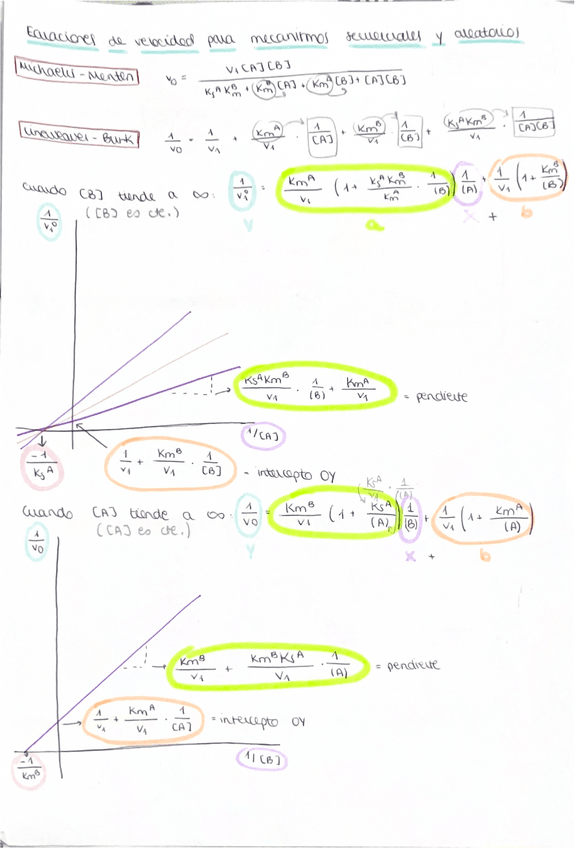 Ecuaciones de velocidad para mecanismos secuenciales y aleatorios
Michaelis-Menten v₀ = V₁[A][B] / (KsᴬKmᴮ + Kmᴮ[A] + Kmᴬ[B] + [A][B])
Lineweaver-Burk 1/v₀ = 1/V₁ + Kmᴬ/V₁ · 1/[A] + Kmᴮ/V₁ · 1/[B] + KsᴬKmᴮ/V₁ · 1/[A][B]
Cuando [B] tiende a ∞: 1/v₀ = Kmᴬ/V₁ (1 + KsᴬKmᴮ/Kmᴬ · 1/[B]) 1/[A] + 1/V₁ (1 + Kmᴮ/[B])
([B] es cte.)
y a x + b
1/v₀
KsᴬKmᴮ/V₁ · 1/[B] + Kmᴬ/V₁ = pendiente
1/[A]
-1/Ksᴬ
1/V₁ + Kmᴮ/V₁ · 1/[B] - intercepto OY
Ksᴬ/V₁ · 1/[B]
Cuando [A] tiende a ∞: 1/v₀ = Kmᴮ/V₁ (1 + Ksᴬ/[A]) 1/[B] + 1/V₁ (1 + Kmᴬ/[A])
([A] es cte.)
y x + b
1/v₀
Kmᴮ/V₁ + KmᴮKsᴬ/V₁ · 1/[A] = pendiente
1/V₁ + Kmᴬ/V₁ · 1/[A] = intercepto OY
-1/Kmᴮ
1/[B]